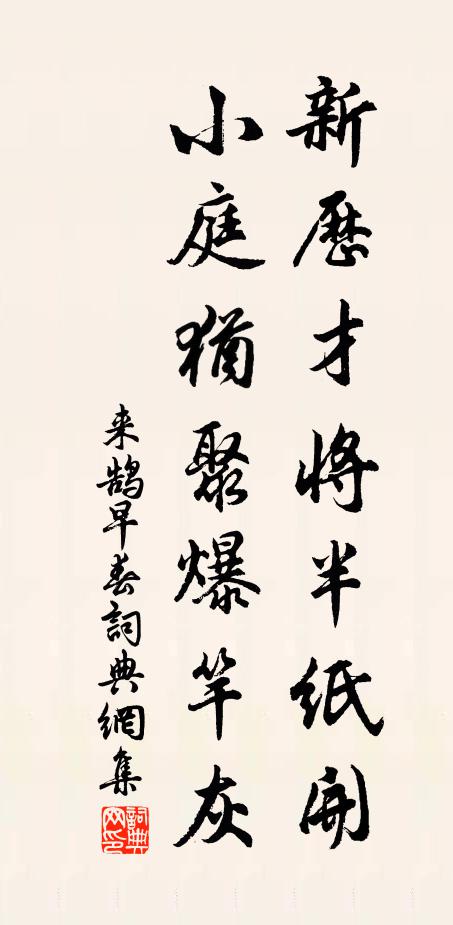 新歷才將半紙開
小庭猶聚爆竿灰
来鵠早春詞典網集
詞典网印